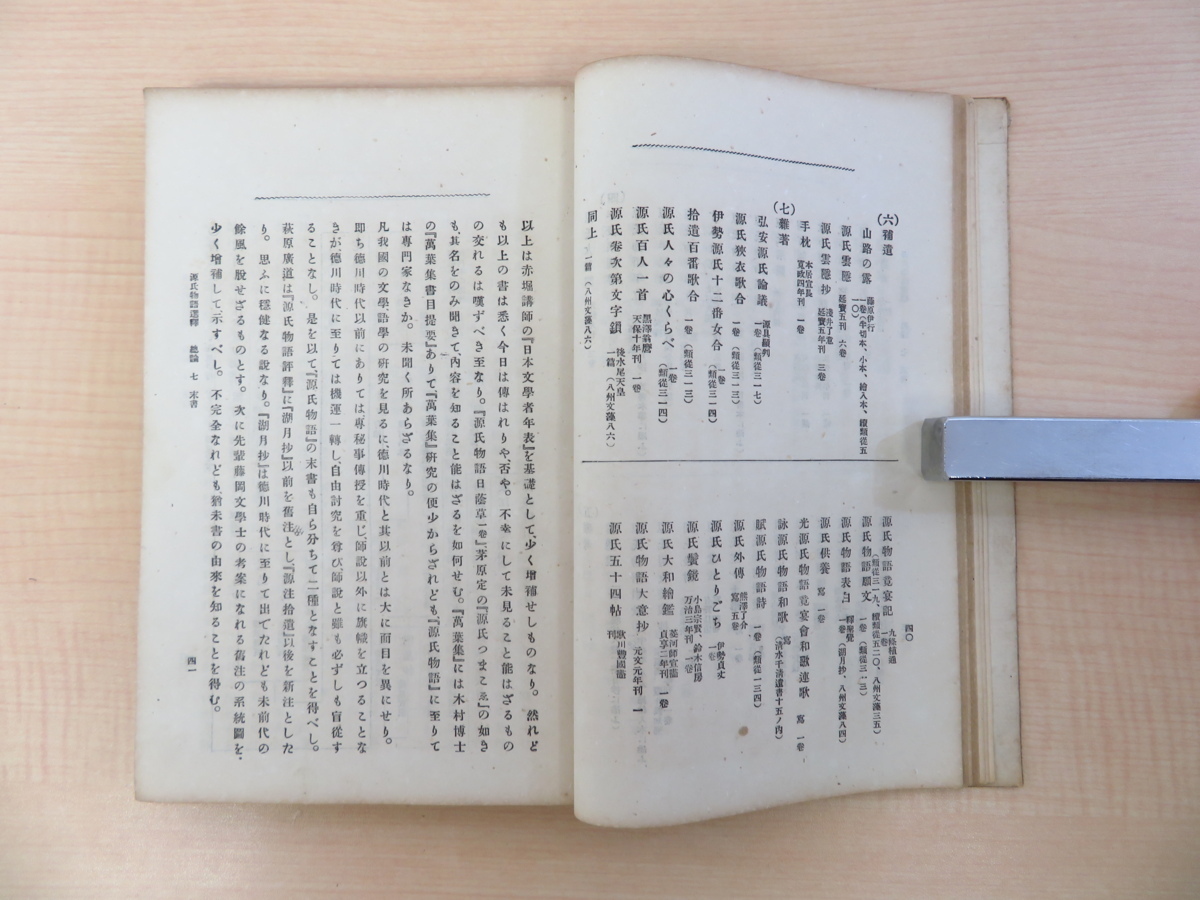 (六)補遺
山路の露 藤原伊行 一卷(半切本、小本、繪入本、續類從五一〇)
源氏雲隱 延寶五刊 六卷
源氏雲隱抄 淺井了意 延寶五年刊 三卷
手枕 本居宣長 寬政四年刊 一卷
(七)雜著
弘安源氏論議 源具顯列 一卷(類從三一七)
源氏狹衣歌合 一卷(類從三一三)
伊勢源氏十二番女合 一卷(類從三一四)
拾遺百番歌合 一卷(類從三一三)
源氏人々の心くらべ 一卷(類從三一四)
源氏百人一首 黑澤翁麿 天保十年刊 一卷
源氏卷次第文字鎖 後水尾天皇 一篇(八州文藻八六)
同上 一篇(八州文藻八六)
源氏物語竟宴記 九條稙通 一卷(類從三一九、續類從五二〇、八州文藻三五)
源氏物語願文 一卷(類從三一三)
源氏物語表白 釋聖覺 一卷(湖月抄、八州文藻八四)
源氏供養 寫 一卷
光源氏物語竟宴會和歌連歌 寫 一卷
詠源氏物語和歌 寫(清水千清遺書十五ノ內)
賦源氏物語詩 一卷(類從一三四)
源氏外傳 熊澤了介 寫 五卷
源氏ひとりごち 伊勢貞丈 一卷
源氏鬢鏡 小島宗賢、鈴木信房 萬治三年刊 一卷
源氏大和繪鑑 菱河師宣畫 貞享二年刊 一卷
源氏物語大意抄 元文元年刊 一
源氏五十四帖 歌川豐國畫 刊
四〇
以上は赤堀講師の『日本文學者年表』を基礎として、少く增補せしものなり。然れど
も以上の書は悉く今日は傳はれりや、否や。不幸にして未見ること能はざるもの
の交れるは嘆ずべき至なり。『源氏物語日蔭草』一卷、茅原定の『源氏つまこゑ』の如き
も、其名をのみ聞きて、內容を知ること能はざるを如何せむ。『萬葉集』には木村博士
の『萬葉集書目提要』ありて『萬葉集』硏究の便少からざれども『源氏物語』に至りて
は專門家なきか。未聞く所あらざるなり。
凡我國の文學語學の硏究を見るに、德川時代と其以前とは大に面目を異にせり。
卽ち德川時代以前にありては、專秘事傳授を重じ、師說以外に旗幟を立つることな
きが、德川時代に至りては機運一轉し、自由討究を尊び、師說と雖も必ずしも盲從す
ることなし。是を以て『源氏物語』の末書も自ら分ちて二種となすことを得べし。
萩原廣道は『源氏物語評釋』に『湖月抄』以前を舊注とし、『源注拾遺』以後を新注とした
り。思ふに穩健なる說なり。『湖月抄』は德川時代に至りて出でたれども未前代の
餘風を脫せざるものとす。次に先輩藤岡文學士の考案になれる舊注の系統圖を、
少く增補して示すべし。不完全なれども猶末書の由來を知ることを得む。
源氏物語選釋 總論 七 末書
四一